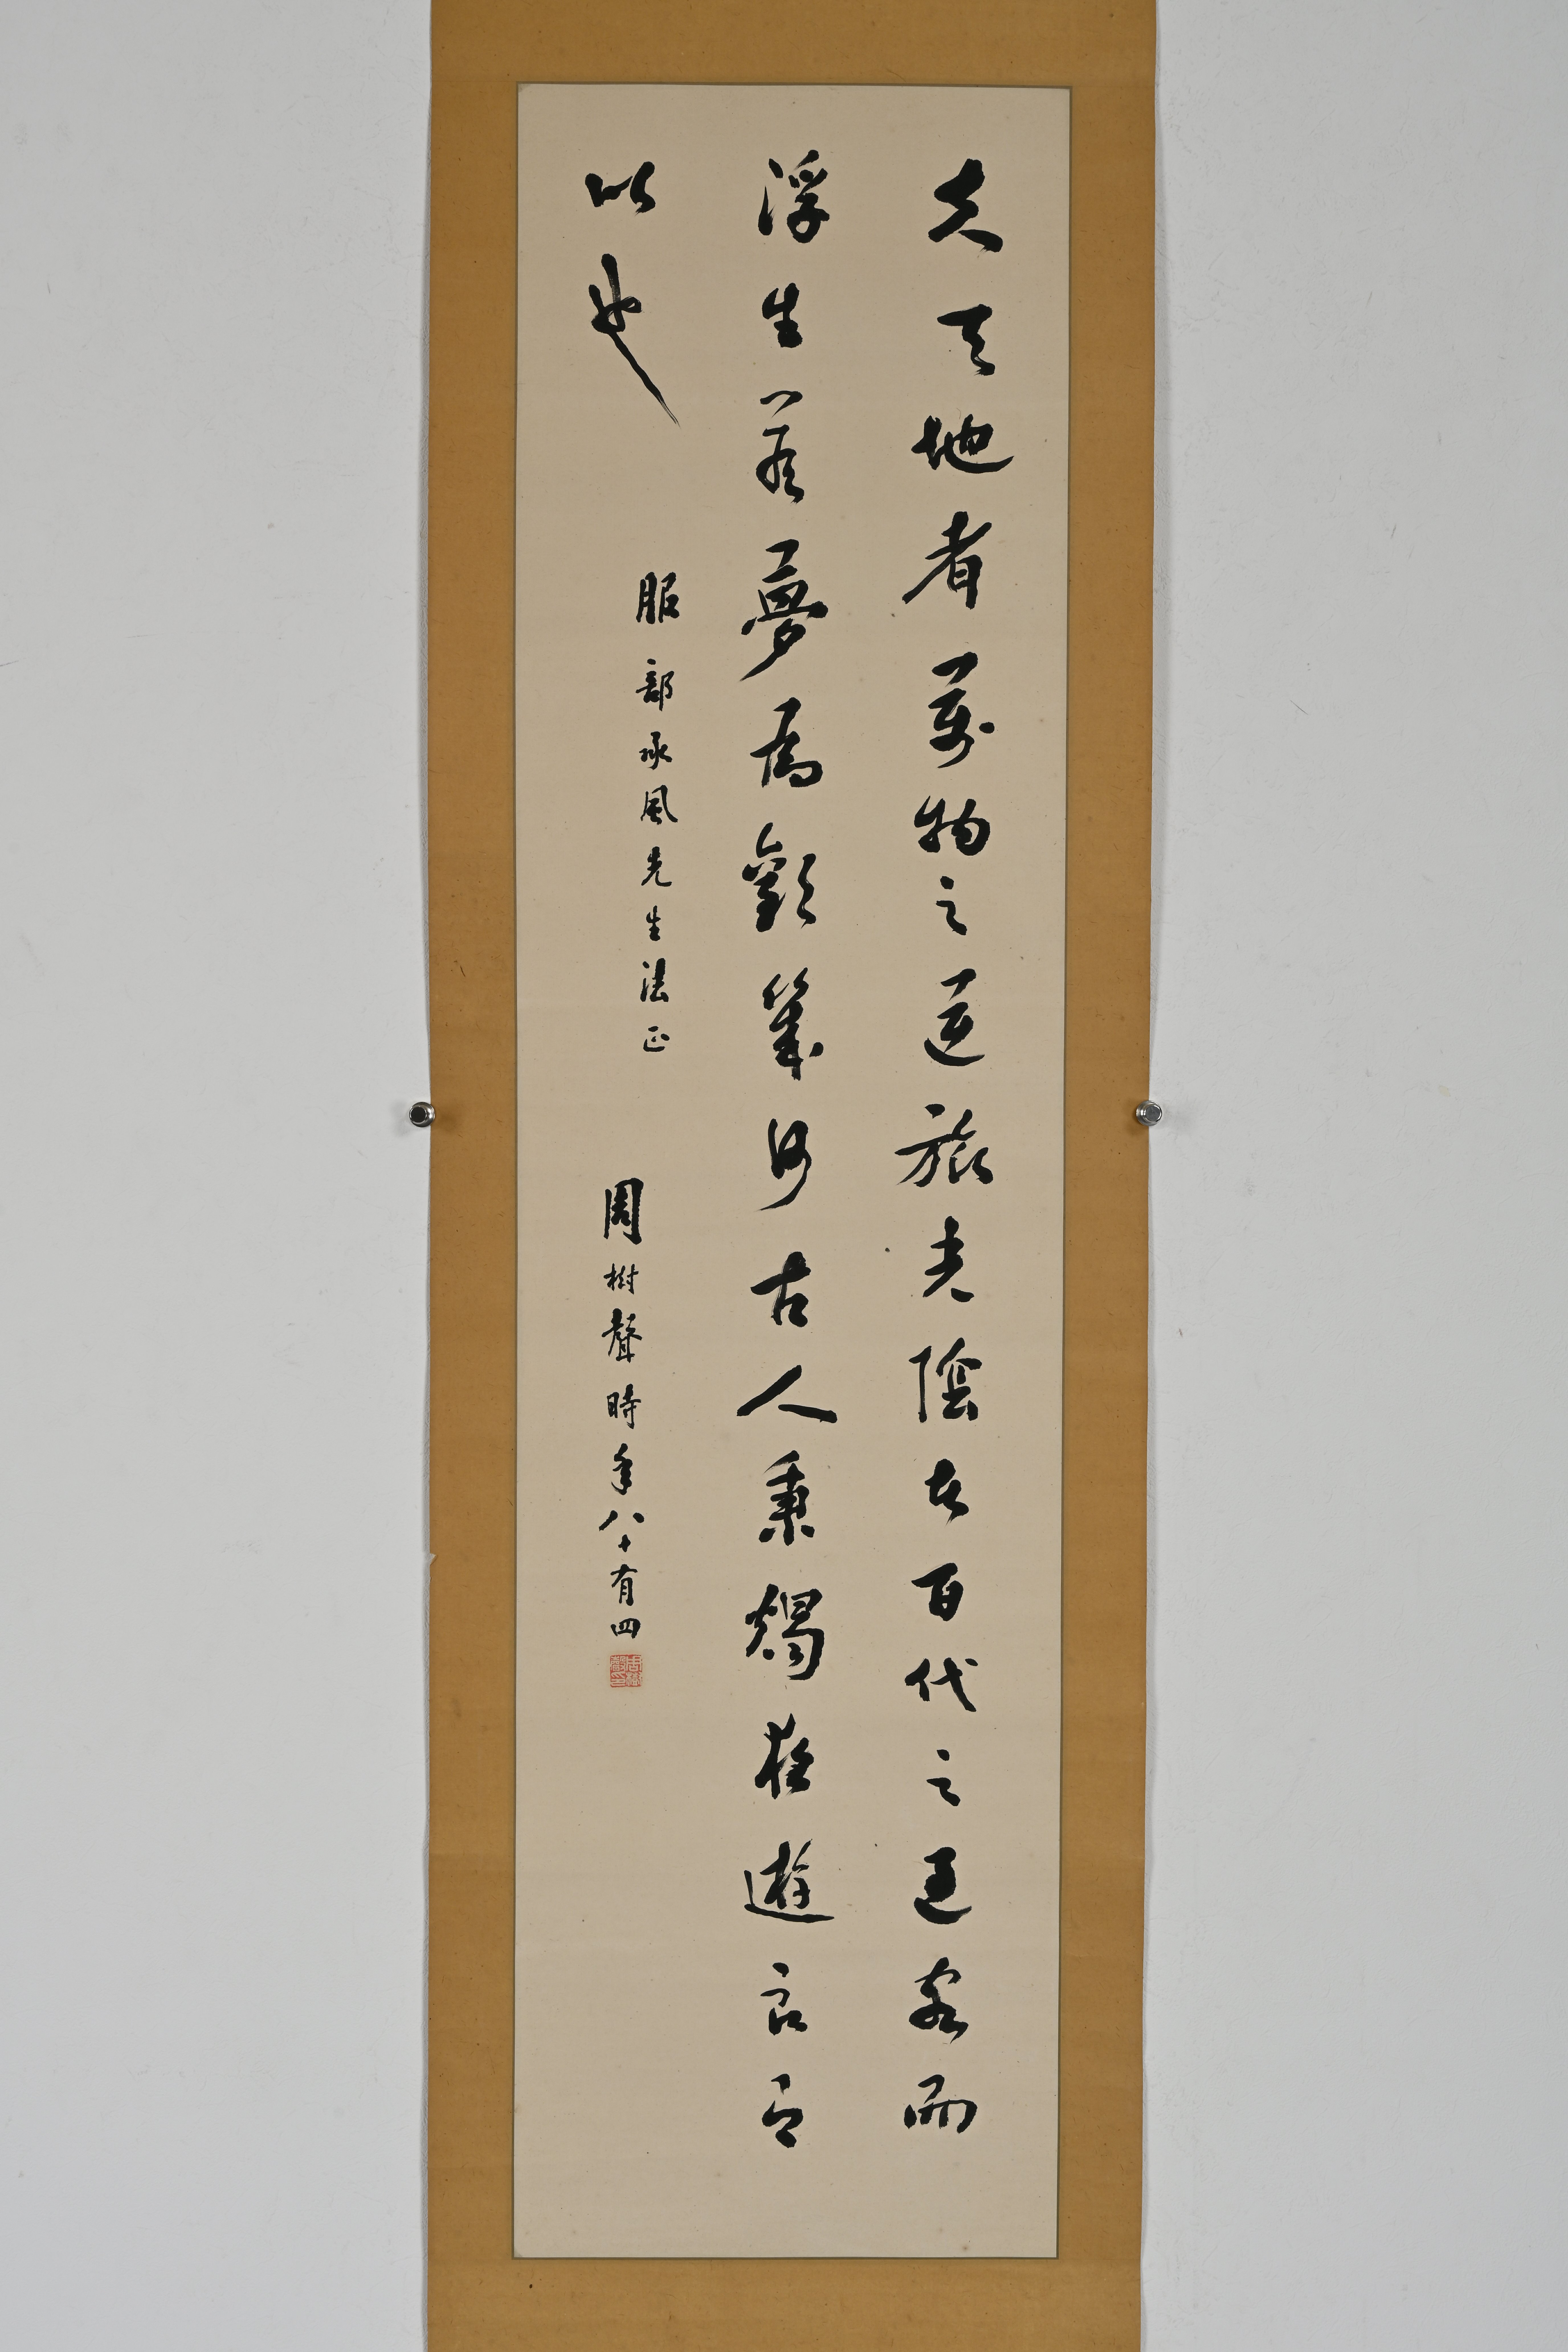 夫天地者萬物之逆旅光陰者百代之過客而
浮生若夢為歡幾何古人秉燭夜遊良有
以也
服部承風先生法正
周樹聲時年八十有四
周樹聲印